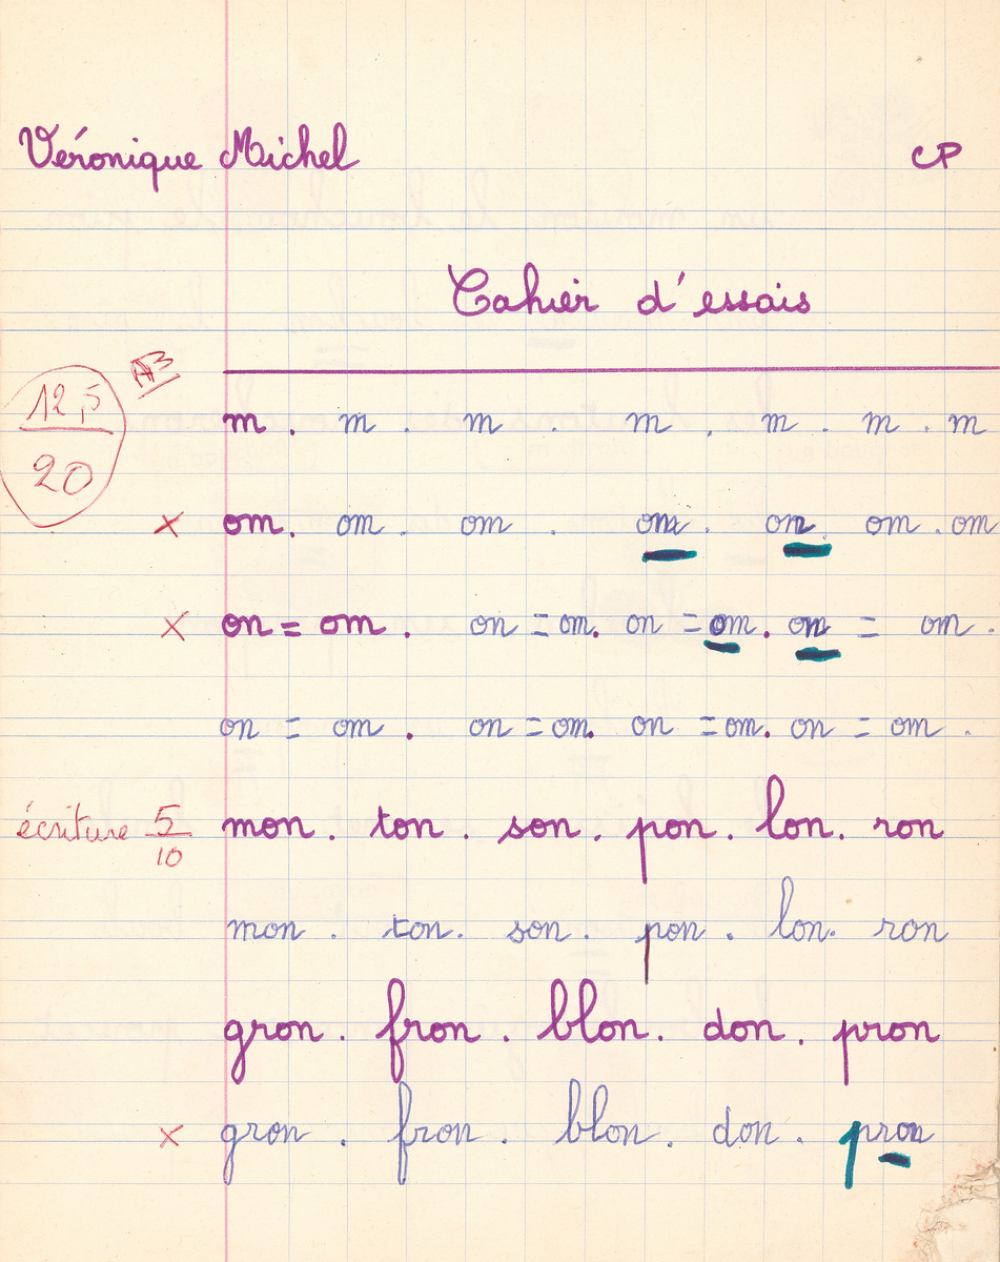 Véronique Michel CP
Cahier d'essais
12,5
20
AB
m . m . m . m . m . m . m
× om . om . om . om . on . om . om
× on = om . on = om . on = om . om = om .
on = om . on = om . on = om . on = om .
écriture 5/10 mon . ton . son . pon . lon . ron
mon . ton . son . pon . lon . ron
gron . fron . blon . don . pron
× gron . fron . blon . don . pron